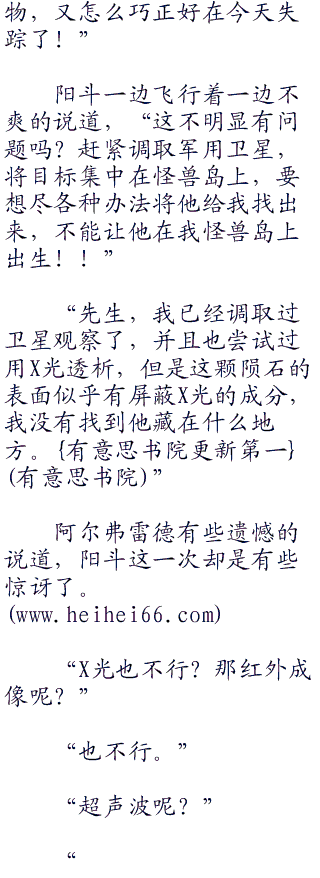 物，又怎么巧正好在今天失
踪了！”
阳斗一边飞行着一边不
爽的说道，“这不明显有问
题吗？赶紧调取军用卫星，
将目标集中在怪兽岛上，要
想尽各种办法将他给我找出
来，不能让他在我怪兽岛上
出生！！”
“先生，我已经调取过
卫星观察了，并且也尝试过
用X光透析，但是这颗陨石的
表面似乎有屏蔽X光的成分，
我没有找到他藏在什么地
方。{有意思书院更新第一}
(有意思书院)”
阿尔弗雷德有些遗憾的
说道，阳斗这一次却是有些
惊讶了。
(www.heihei66.com)
“X光也不行？那红外成
像呢？”
“也不行。”
“超声波呢？”
“